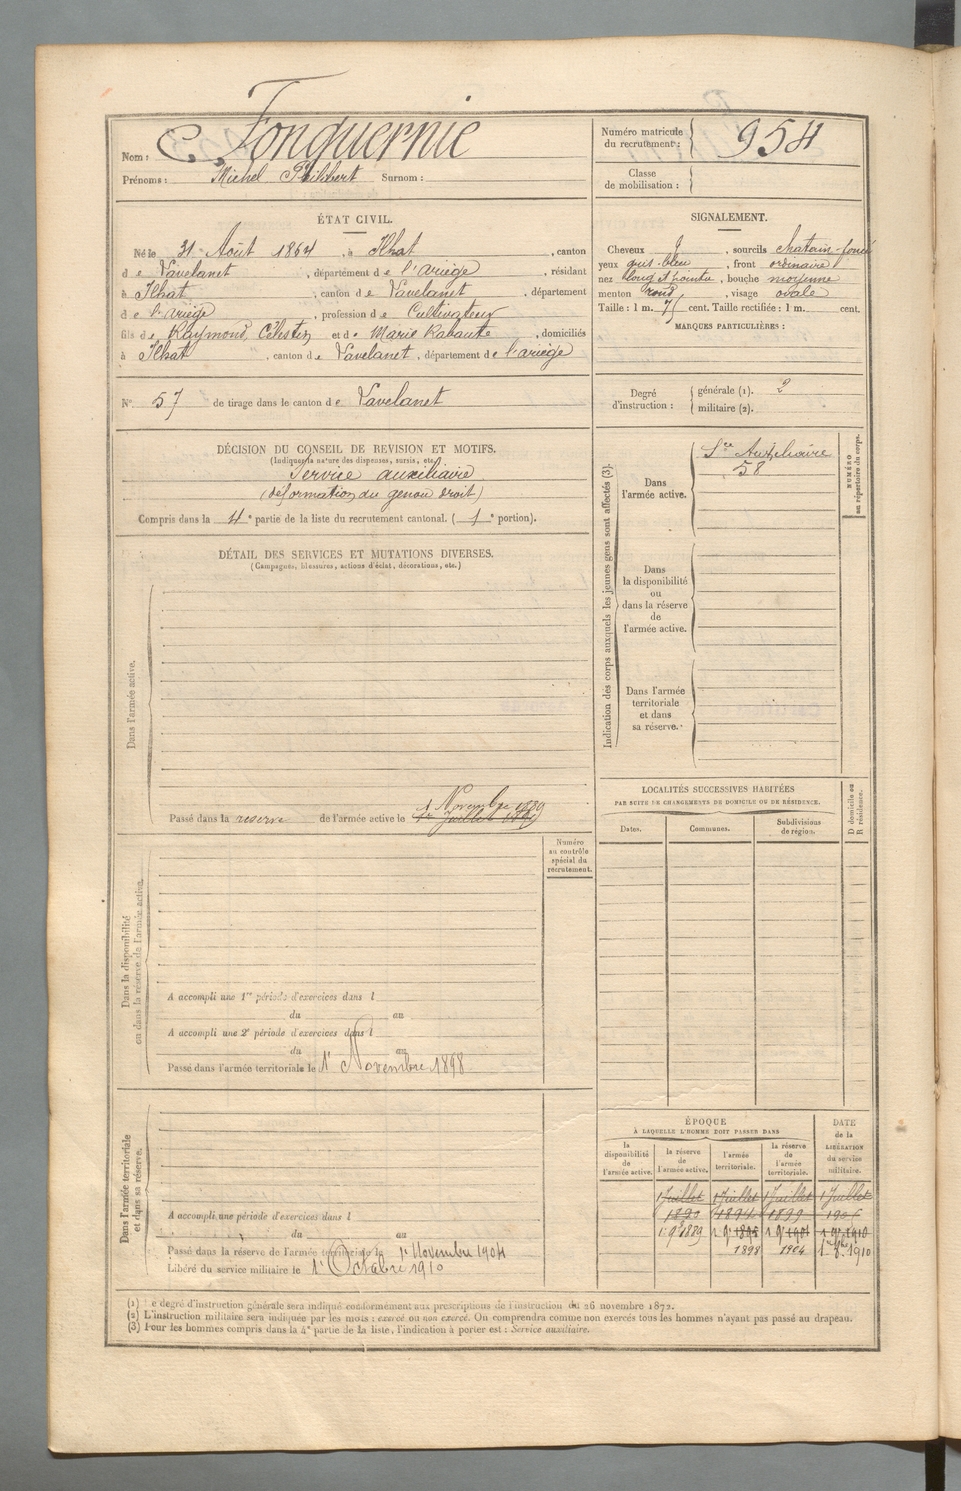 Nom : Fonquernie
Prénoms : Michel Philibert Surnom :
Numéro matricule du recrutement : 954
Classe de mobilisation :
ÉTAT CIVIL.
Né le 31 Août 1864, à Ilhat, canton
de Lavelanet, département de l'Ariège, résidant
à Ilhat, canton de Lavelanet, département
de l'Ariège, profession de Cultivateur
fils de Raymond, Célestin et de Marie Rabaute, domiciliés
à Ilhat, canton de Lavelanet, département de l'Ariège
SIGNALEMENT.
Cheveux , sourcils chatain-foncé
yeux gris-bleu, front ordinaire
nez long et pointu, bouche moyenne
menton rond, visage ovale
Taille : 1 m. 75 cent. Taille rectifiée : 1 m. cent.
MARQUES PARTICULIÈRES :
N° 57 de tirage dans le canton de Lavelanet
Degré d'instruction : générale (1). 2
militaire (2).
DÉCISION DU CONSEIL DE REVISION ET MOTIFS.
(Indiquer la nature des dispenses, sursis, etc.)
Service auxiliaire
(déformation du genou droit)
Compris dans la 4e partie de la liste du recrutement cantonal. (1e portion).
DÉTAIL DES SERVICES ET MUTATIONS DIVERSES.
(Campagnes, blessures, actions d'éclat, décorations, etc.)
Dans l'armée active.
1 Novembre 1889
Passé dans la reserve de l'armée active le 1er Juillet
Indication des corps auxquels les jeunes gens sont affectés (3).
NUMÉRO au répertoire du corps.
Dans l'armée active.
Sce Auxiliaire
58
Dans la disponibilité ou dans la réserve de l'armée active.
Dans l'armée territoriale et dans sa réserve.
LOCALITÉS SUCCESSIVES HABITÉES
PAR SUITE DE CHANGEMENTS DE DOMICILE OU DE RÉSIDENCE.
Dates. Communes. Subdivisions de région.
D domicile ou R résidence.
Numéro au contrôle spécial du recrutement.
Dans la disponibilité ou dans la réserve de l'armée active.
A accompli une 1re période d'exercices dans l
du au
A accompli une 2e période d'exercices dans l
du au
Passé dans l'armée territoriale le 1r Novembre 1898
Dans l'armée territoriale et dans sa réserve.
A accompli une période d'exercices dans l
du au
Passé dans la réserve de l'armée territoriale le 1r Novembre 1904
Libéré du service militaire le 1r Octobre 1910
ÉPOQUE
À LAQUELLE L'HOMME DOIT PASSER DANS
DATE de la LIBÉRATION du service militaire.
la disponibilité de l'armée active. la réserve de l'armée active. l'armée territoriale. la réserve de l'armée territoriale.
1 Juillet 1 Juillet 1 Juillet 1 Juillet
1890 1894 1899
1889 1910
1898 1904 1910
(1) Le degré d'instruction générale sera indiqué conformément aux prescriptions de l'instruction du 26 novembre 1872.
(2) L'instruction militaire sera indiquée par les mots : exercé ou non exercé. On comprendra comme non exercés tous les hommes n'ayant pas passé au drapeau.
(3) Pour les hommes compris dans la 4e partie de la liste, l'indication à porter est : Service auxiliaire.